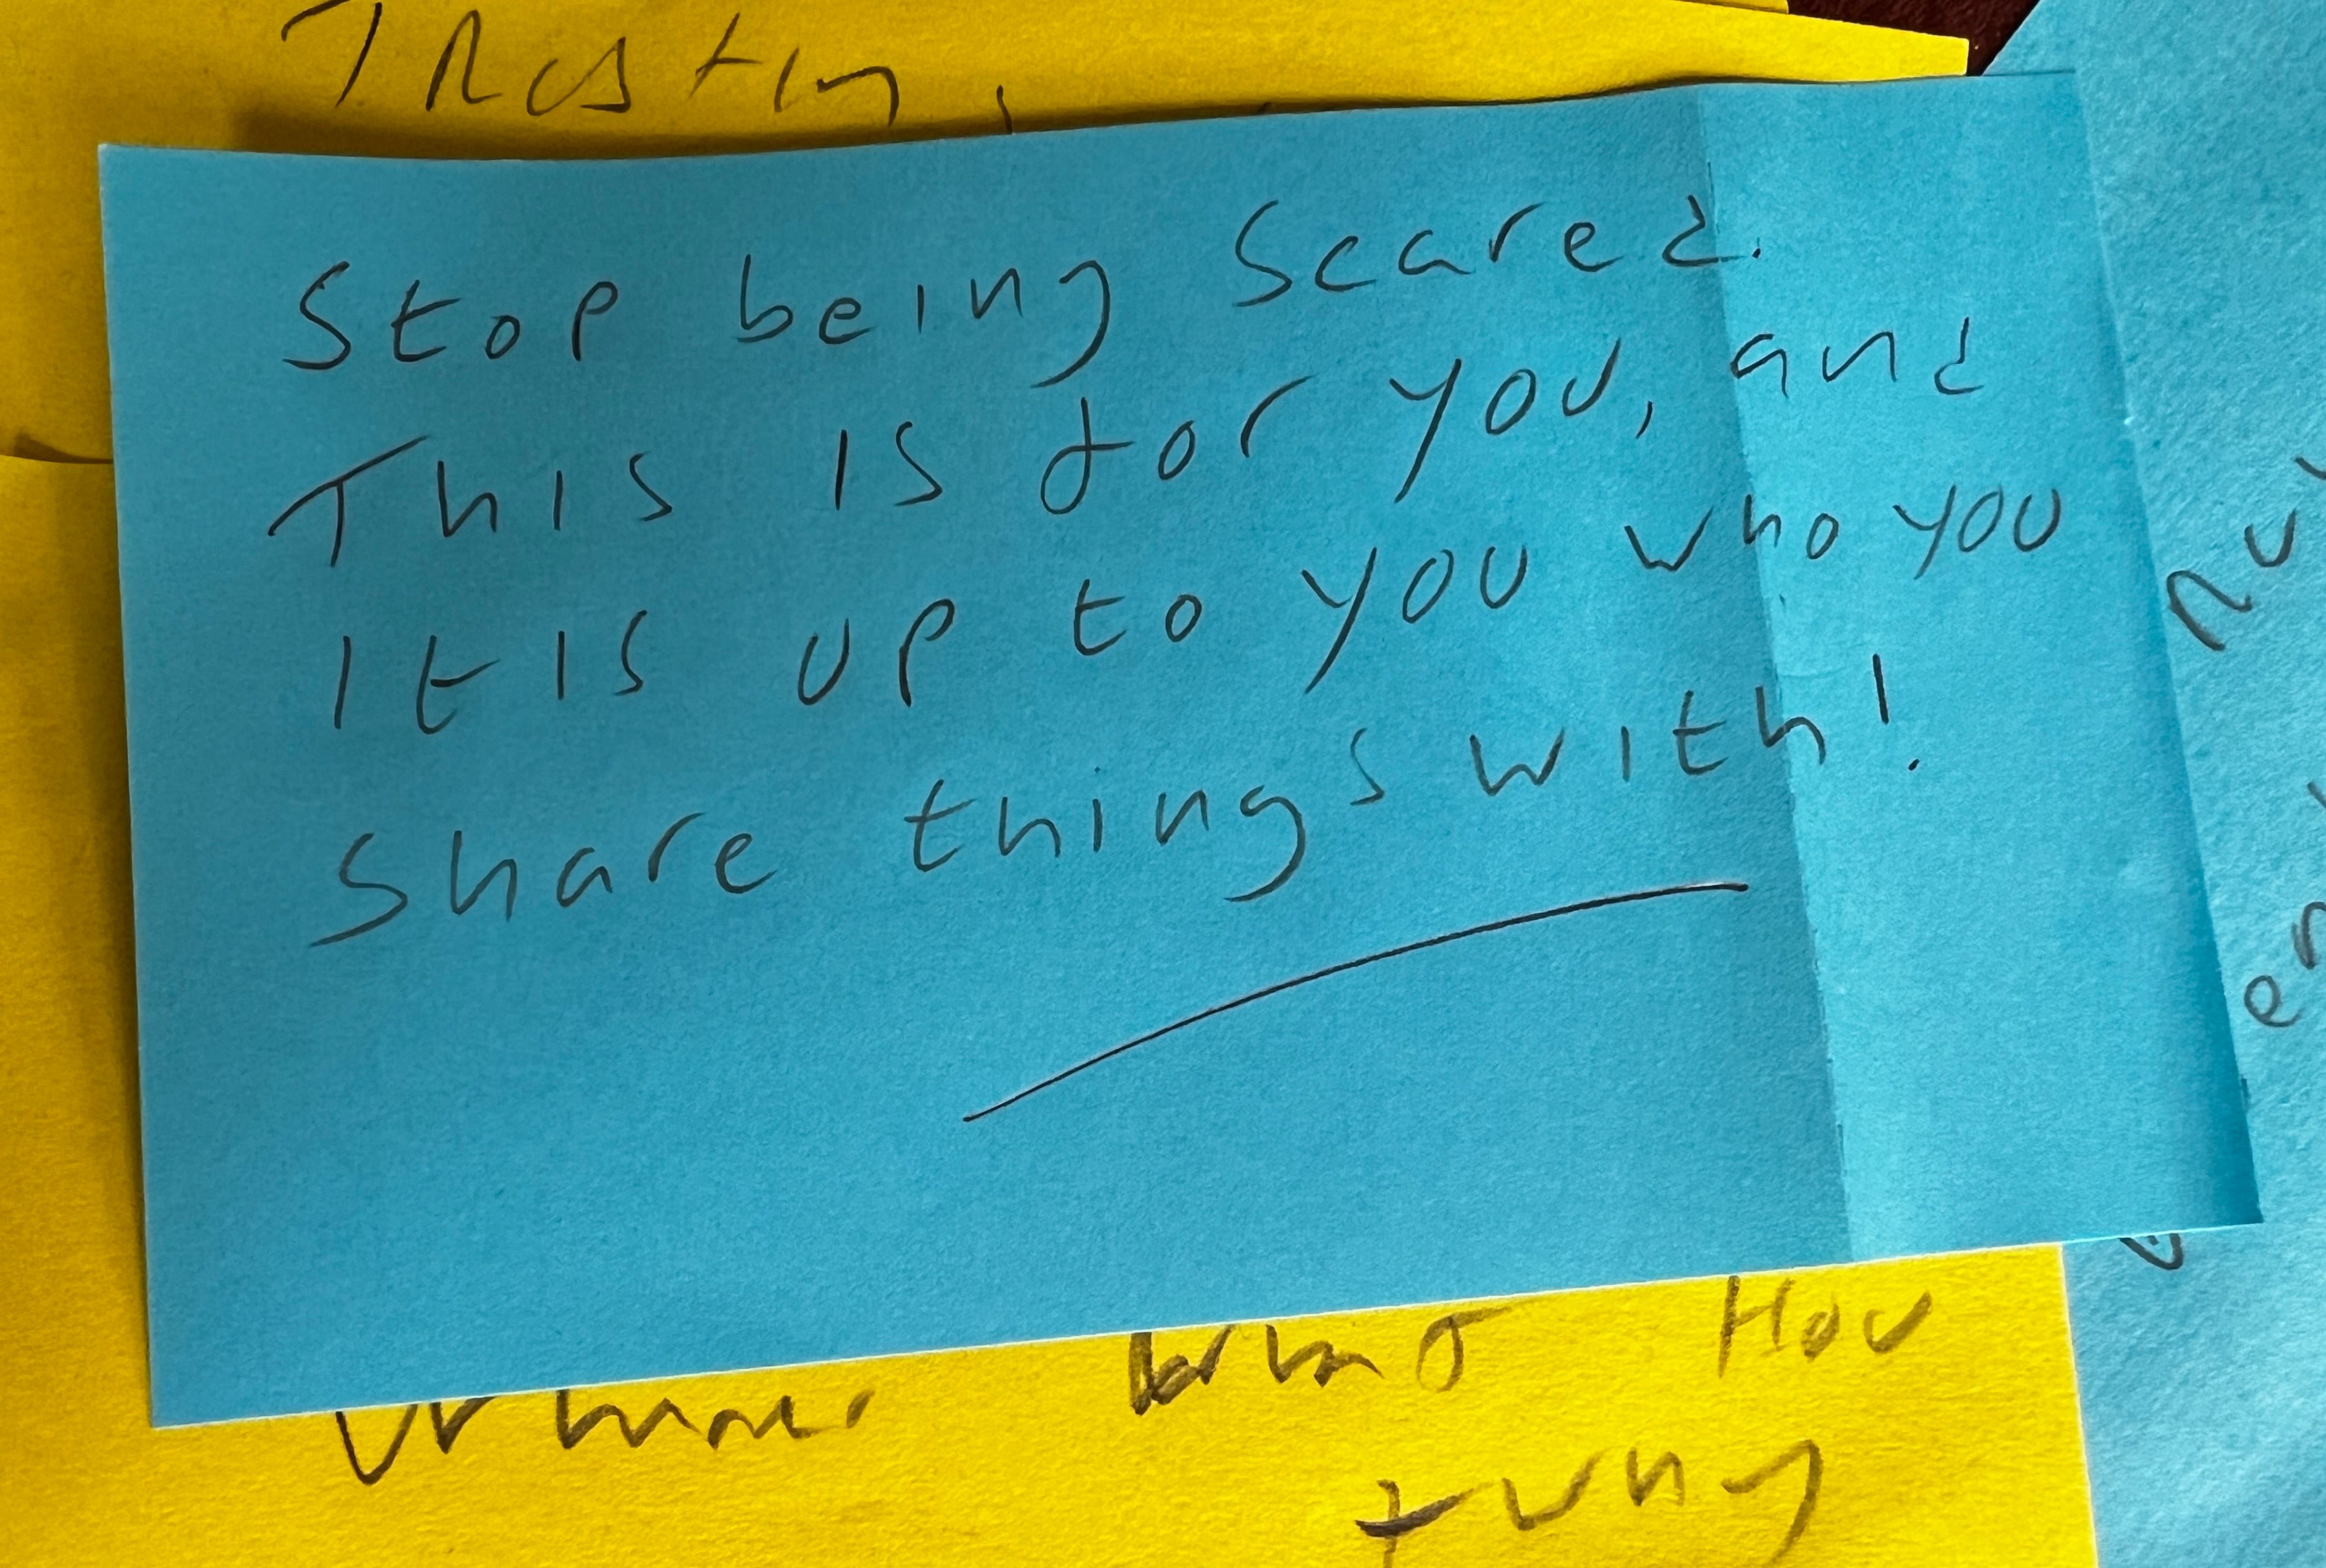 Stop being scared.
This is for you, and
it is up to you who you
share things with!
What How
+ why